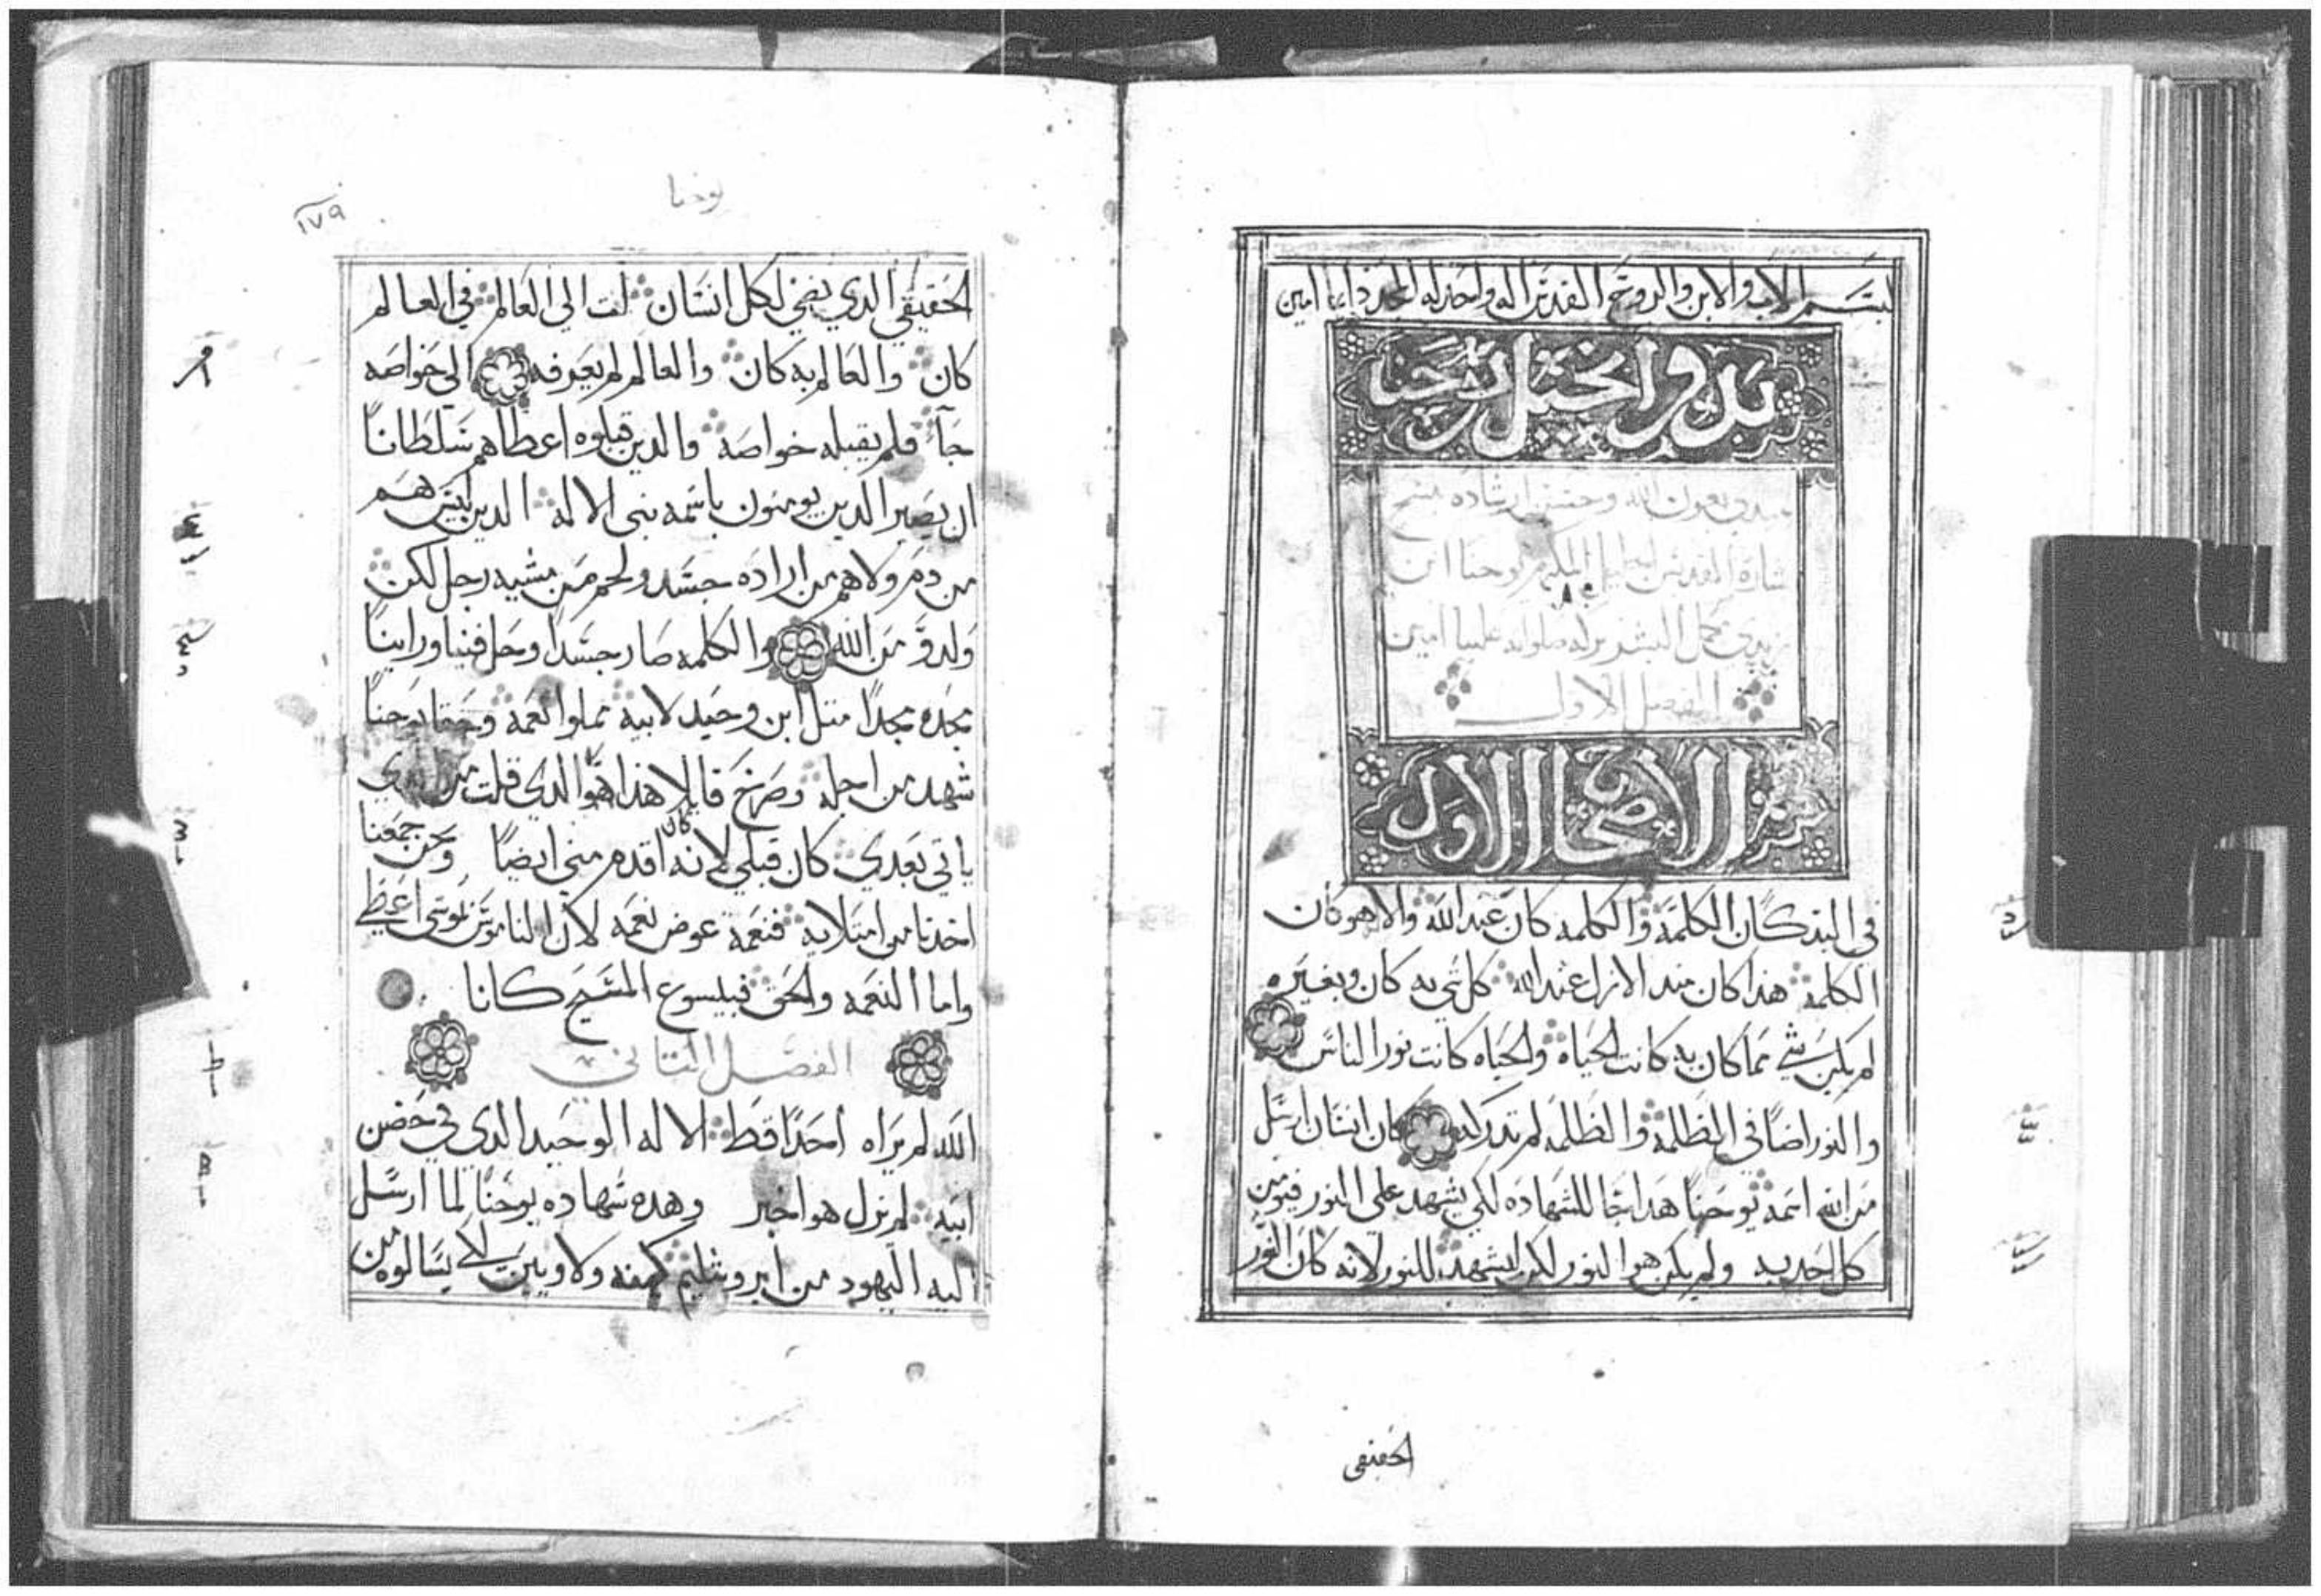 بسم الاب والابن والروح القدس اله واحد له المجد دايما امين
بدو انجيل يوحنا
نبتدي بعون الله وحسن ارشاده بنسخ
بشارة القديس الجليل يوحنا ابن
زبدي بركة صلواته علينا امين
الفصل الاول
الاصحاح الاول
في البدكان الكلمة والكلمه كان عند الله والاه هو كان
الكلمة هذا كان مند الازل عند الله كل شي به كان وبغيره
لم يكن شي مما كان به كانت الحياة والحياه كانت نور الناس
والنور اضا في الظلمة والظلمه لم تدركه كان انسان ارسل
من الله اسمه يوحنا هدا جا للشهاده لكي يشهد علي النور فيومن
كل احد به ولم يكن هو النور لكن ليشهد للنور لانه كان النور
الحقيقي
يوحنا
١٧٩
الحقيقي الدي يضي لكل انسان ات الي العالم في العالم
كان والعالم به كان والعالم لم يعرفه الي خواصه
جآء فلم يقبله خواصه والدين قبلوه اعطاهم سلطانا
ان يصير الدين يومنون باسمه بني الاله الدين ليس هم
من دم ولا هم من اراده جسد ولحم من مشيه رجل لكن
ولدو من الله والكلمه صار جسدا وحل فينا وراينا
مجده مجدا متل ابن وحيد لابيه مملوا نعمه وحقا يوحنا
شهد من اجله وصرخ قايلا هدا هو الدي قلت من
ياتي بعدي كان قبلي لانه كان اقدم مني ايضا ونحن جمعنا
اخدنا من امتلايه فنعمة عوض نعمه لان الناموس بموسى اعطي
واما النعمه والحق فبيسوع المسيح كانا
الفصل التاني
الله لم يراه احدا قط الاله الوحيد الدي في حضن
ابيه لم يزل هو اخبر وهده شهاده يوحنا لما ارسل
اليه اليهود من ايروشليم كهنه ولاويين لاي يسالوه من